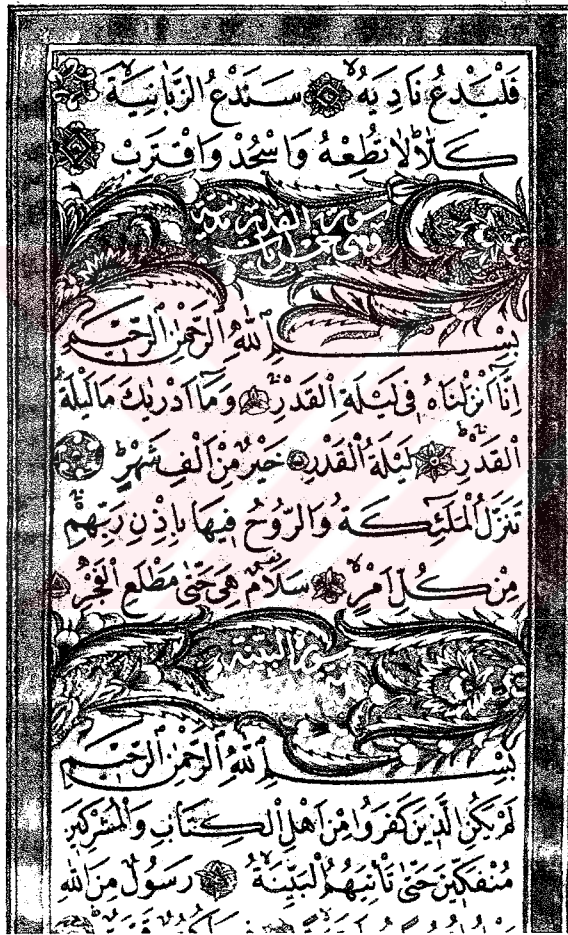 فَلْيَدْعُ نَادِيَهُ سَنَدْعُ الزَّبَانِيَةَ
كَلَّا لَا تُطِعْهُ وَاسْجُدْ وَاقْتَرِبْ
سورة القدر
بِسْمِ اللّٰهِ الرَّحْمٰنِ الرَّحِيمِ
اِنَّا اَنْزَلْنَاهُ فِى لَيْلَةِ الْقَدْرِ وَمَا اَدْرٰيكَ مَا لَيْلَةُ
الْقَدْرِ لَيْلَةُ الْقَدْرِ خَيْرٌ مِنْ اَلْفِ شَهْرٍ
تَنَزَّلُ الْمَلٰٓئِكَةُ وَالرُّوحُ فِيهَا بِاِذْنِ رَبِّهِمْ
مِنْ كُلِّ اَمْرٍ سَلَامٌ هِىَ حَتّٰى مَطْلَعِ الْفَجْرِ
سورة البينة
بِسْمِ اللّٰهِ الرَّحْمٰنِ الرَّحِيمِ
لَمْ يَكُنِ الَّذِينَ كَفَرُوا مِنْ اَهْلِ الْكِتَابِ وَالْمُشْرِكِينَ
مُنْفَكِّينَ حَتّٰى تَأْتِيَهُمُ الْبَيِّنَةُ رَسُولٌ مِنَ اللّٰهِ